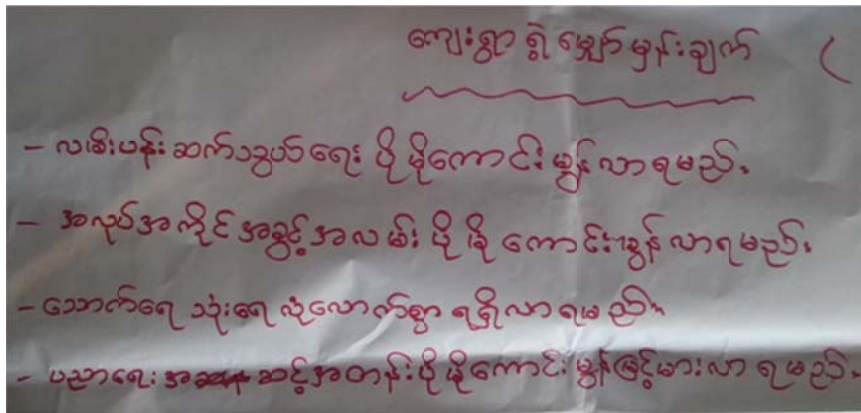 ကျေးရွာ ရဲ့ မျှော်မှန်းချက် (
- လမ်းပန်း ဆက်သွယ် ရေး ပို မိုကောင်း မွန် လာ ရမည်.
- အလုပ်အကိုင် အခွင့် အလမ်း ပို မို ကောင်း မွန် လာ ရမည်.
- သောက်ရေ သုံးရေ လုံလောက်စွာ ရရှိလာ ရမည်.
- ပညာရေး အဆင့်အတန်း ပို မိုကောင်း မွန်မြင့်မားလာ ရမည်.